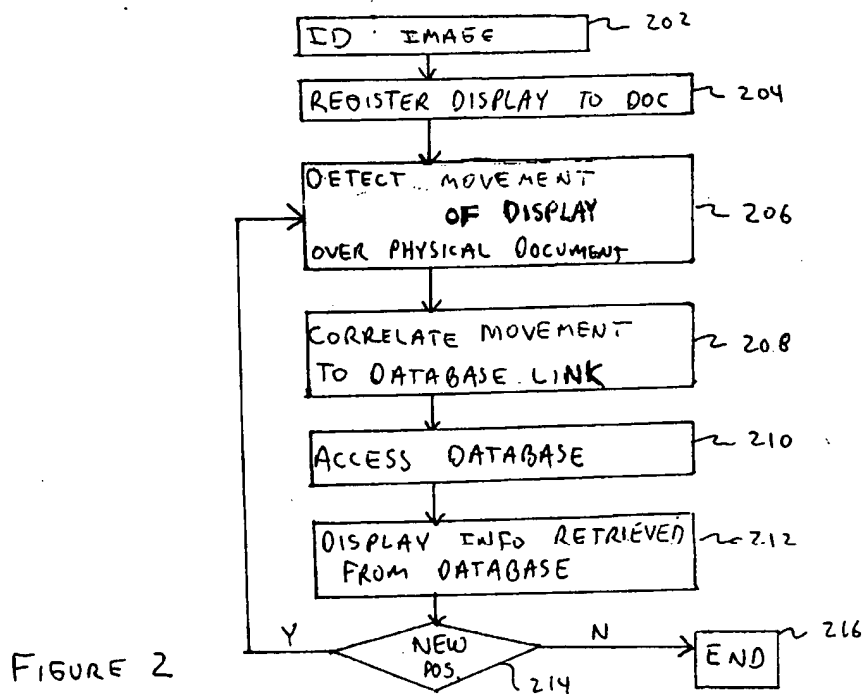 ID IMAGE
202
REGISTER DISPLAY TO DOC
204
DETECT MOVEMENT
OF DISPLAY
OVER PHYSICAL DOCUMENT
206
CORRELATE MOVEMENT
TO DATABASE LINK
208
ACCESS DATABASE
210
DISPLAY INFO RETRIEVED
FROM DATABASE
212
Y
NEW
POS.
N
214
END
216
FIGURE 2